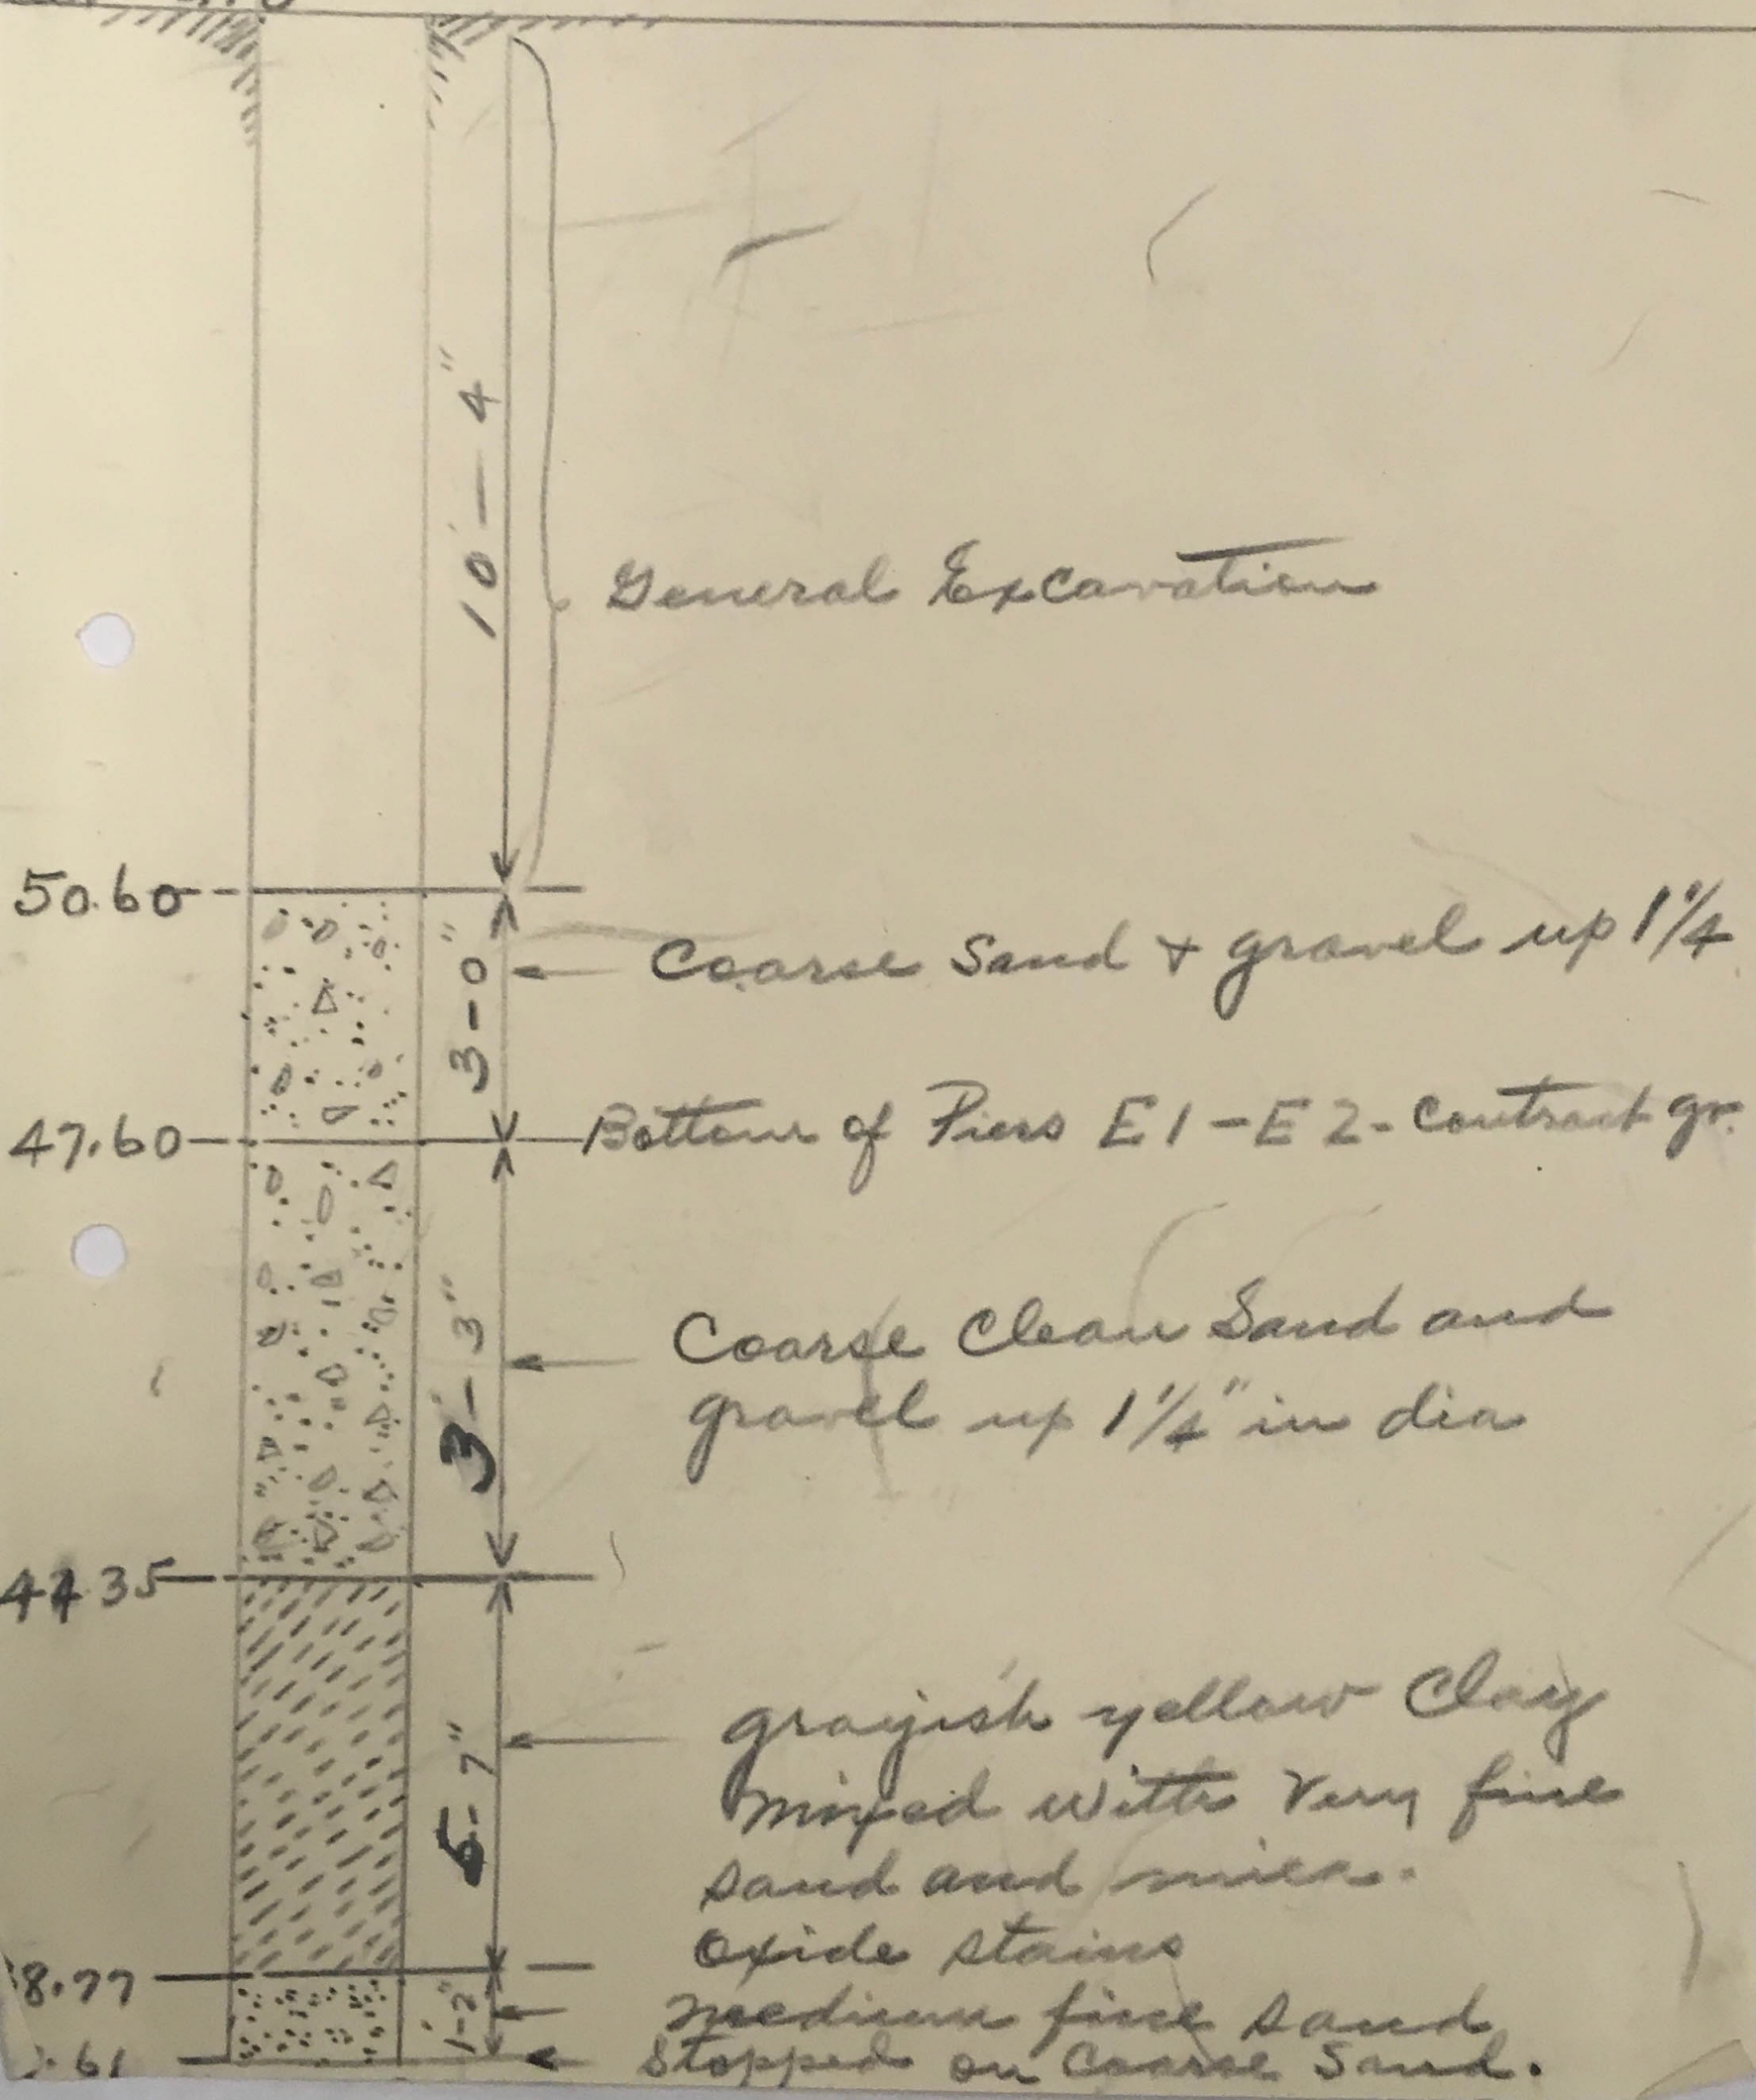 10'-4"
General Excavation
50.60
3-0"
Coarse Sand & gravel up 1 1/4
47.60
Bottom of Piers E1-E2-Contract gr.
3'-3"
Coarse Clean Sand and
gravel up 1 1/4" in dia
44.35
5-7"
grayish yellow Clay
mixed with very fine
sand and mica.
Oxide stains
8.77
1-2"
medium fine sand
.61
Stopped on Coarse Sand.